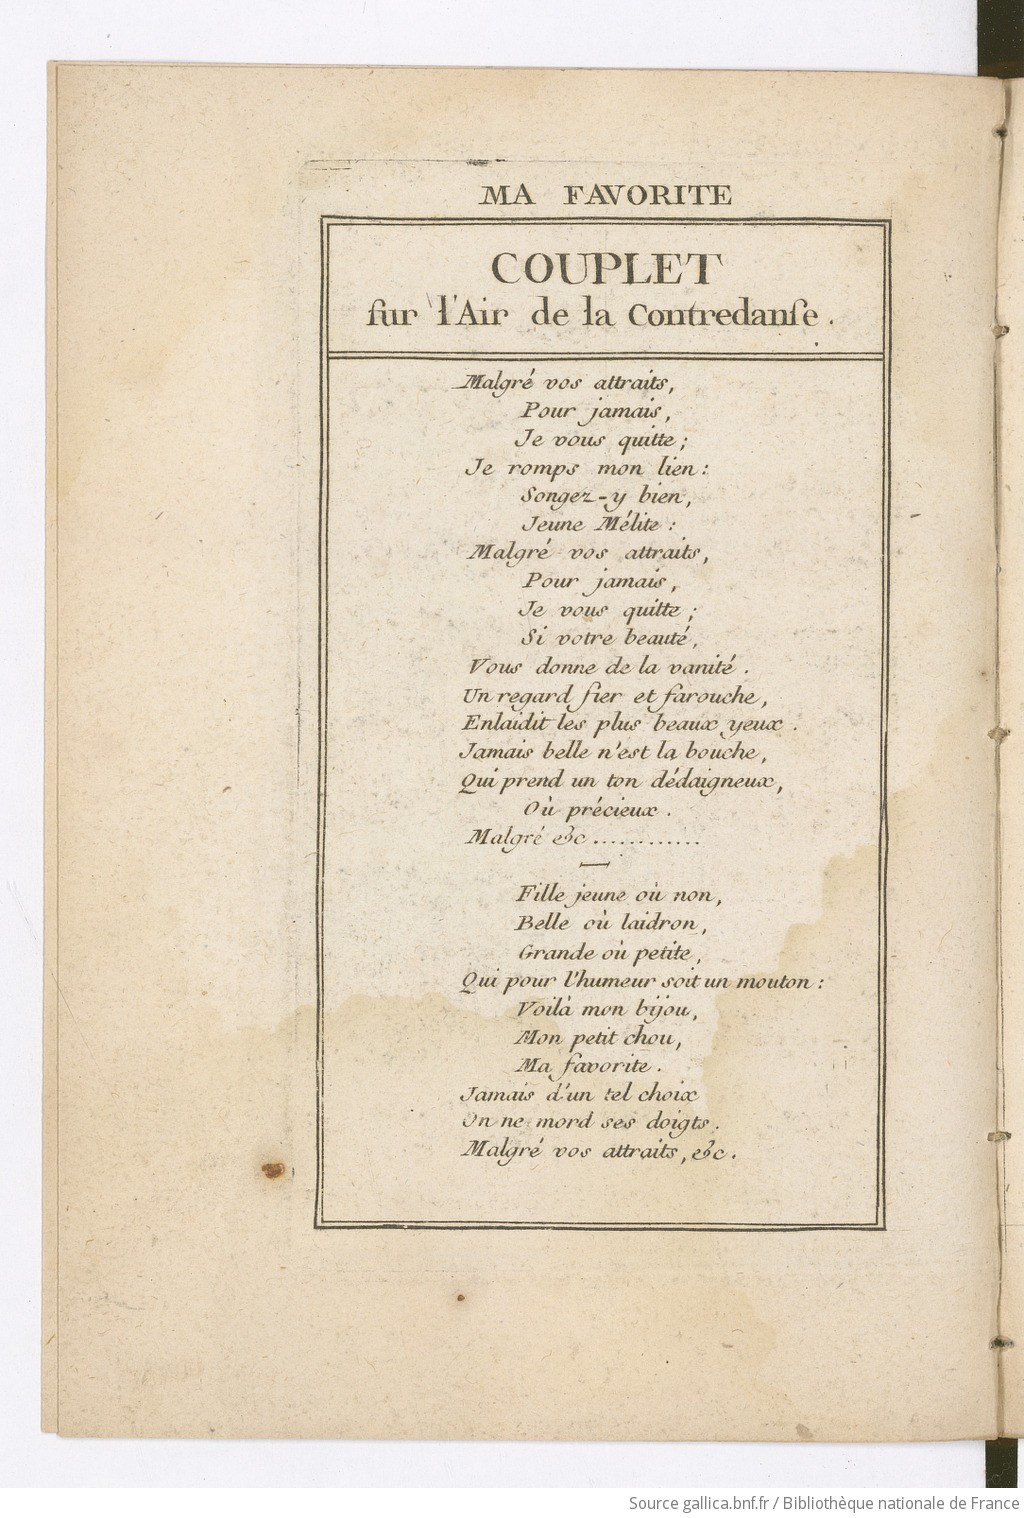 MA FAVORITE
COUPLET
sur l'Air de la Contredanse.
Malgré vos attraits,
Pour jamais,
Je vous quitte;
Je romps mon lien:
Songez-y bien,
Jeune Mélite:
Malgré vos attraits,
Pour jamais,
Je vous quitte;
Si votre beauté,
Vous donne de la vanité.
Un regard fier et farouche,
Enlaidit les plus beaux yeux.
Jamais belle n'est la bouche,
Qui prend un ton dédaigneux,
Où précieux.
Malgré &c............
Fille jeune où non,
Belle où laidron,
Grande où petite,
Qui pour l'humeur soit un mouton:
Voilà mon bijou,
Mon petit chou,
Ma favorite.
Jamais d'un tel choix
On ne mord ses doigts.
Malgré vos attraits, &c.
Source gallica.bnf.fr / Bibliothèque nationale de France